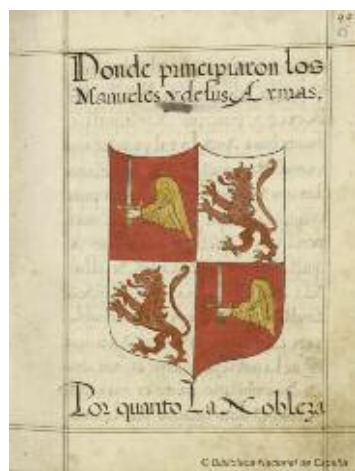 Donde principiaron los
Manueles y de sus Armas.
Por quanto La Nobleza
© Biblioteca Nacional de España